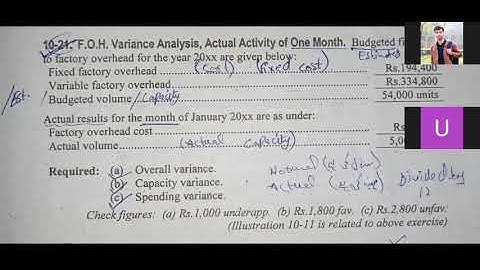 10-21. F.O.H. Variance Analysis, Actual Activity of One Month. Budgeted fi
to factory overhead for the year 20xx are given below: Estimated
Fixed factory overhead (Cost) (fixed cost) Rs.194,400
Variable factory overhead Rs.334,800
/Est. Budgeted volume / Capacity 54,000 units
Actual results for the month of January 20xx are as under:
Factory overhead cost Rs
Actual volume (Actual Capacity) 5,0
Required: (a) Overall variance.
(b) Capacity variance.
(c) Spending variance.
Actual
Divided by
12
Check figures: (a) Rs.1,000 underapp. (b) Rs.1,800 fav. (c) Rs.2,800 unfav.
(Illustration 10-11 is related to above exercise)
U